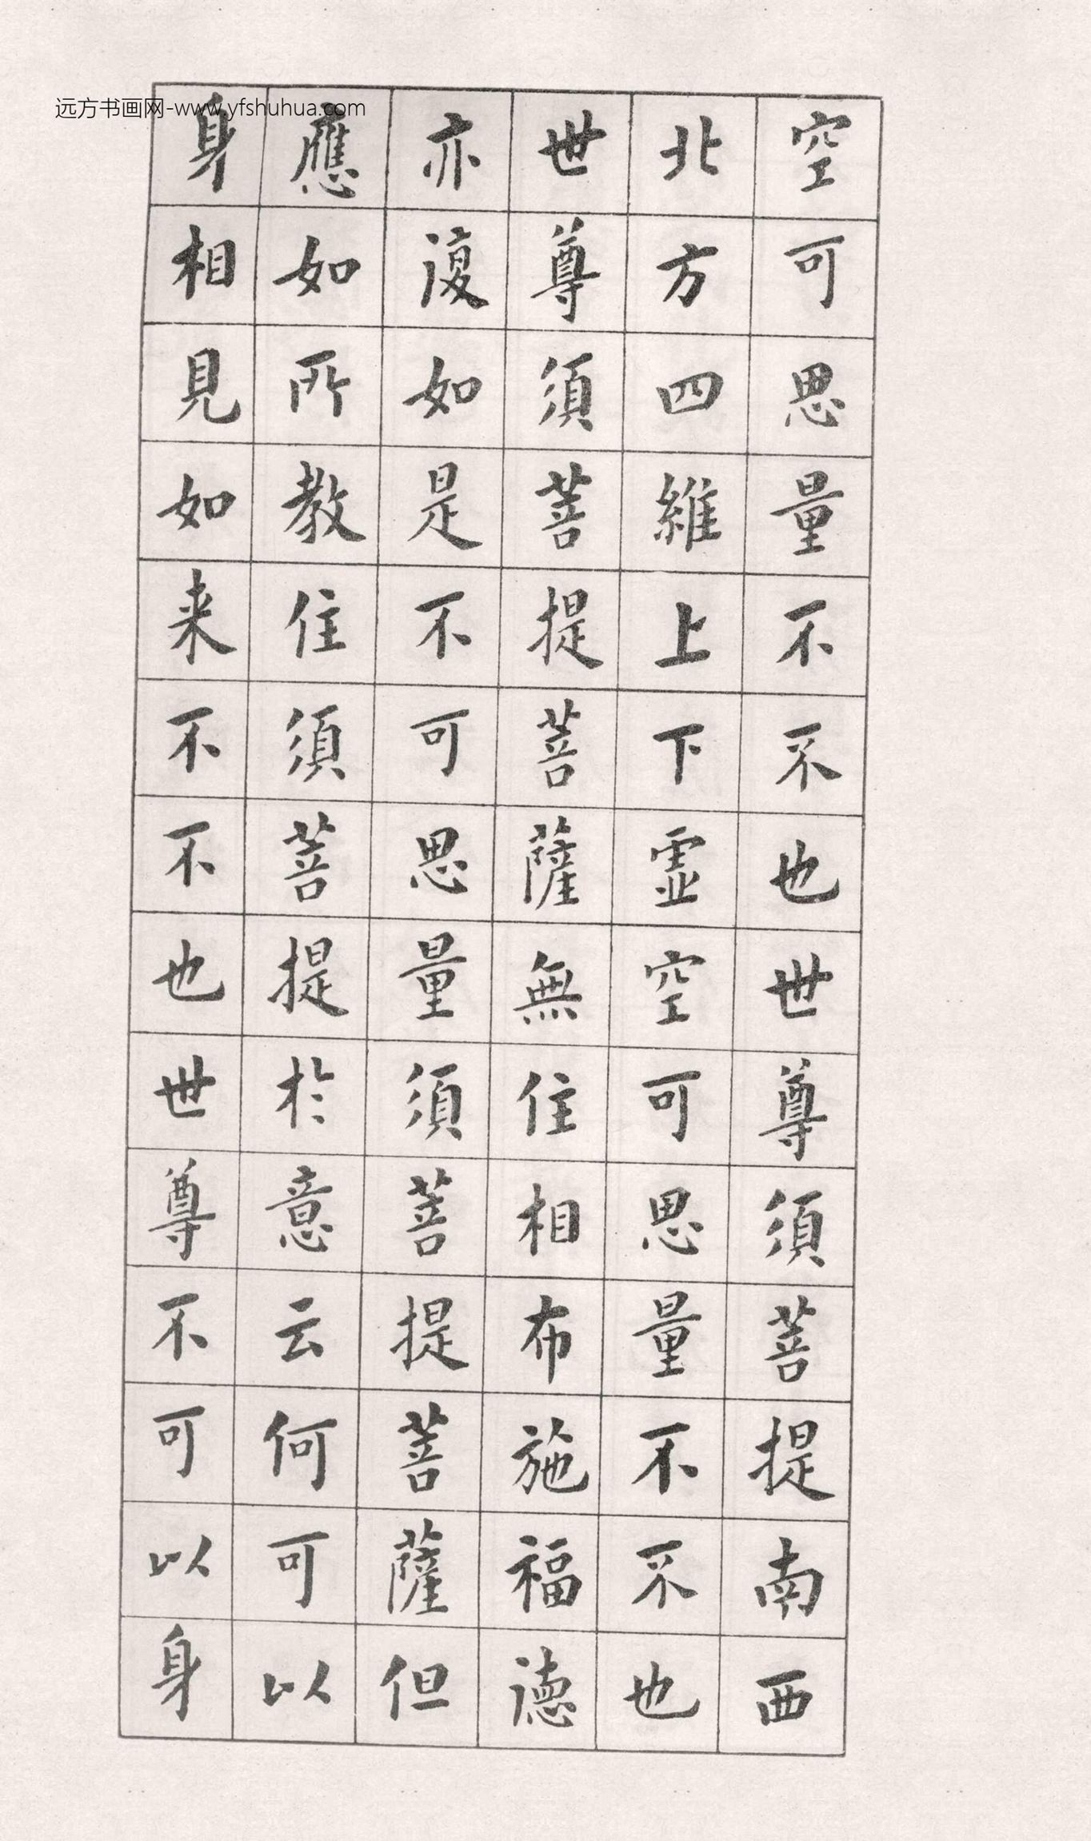 远方书画网-www.yfshuhua.com
空可思量不不也世尊須菩提南西
北方四維上下虛空可思量不不也
世尊須菩提菩薩無住相布施福德
亦復如是不可思量須菩提菩薩但
應如所教住須菩提於意云何可以
身相見如来不不也世尊不可以身